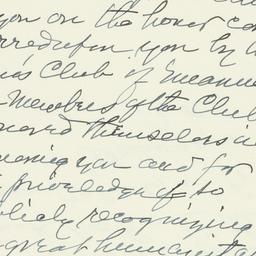 you on the honor con
rred upon you by
's Club of
Members of the Club
nored themselves in
noring you and for
privilege of so
blicly recognizing
great humanita